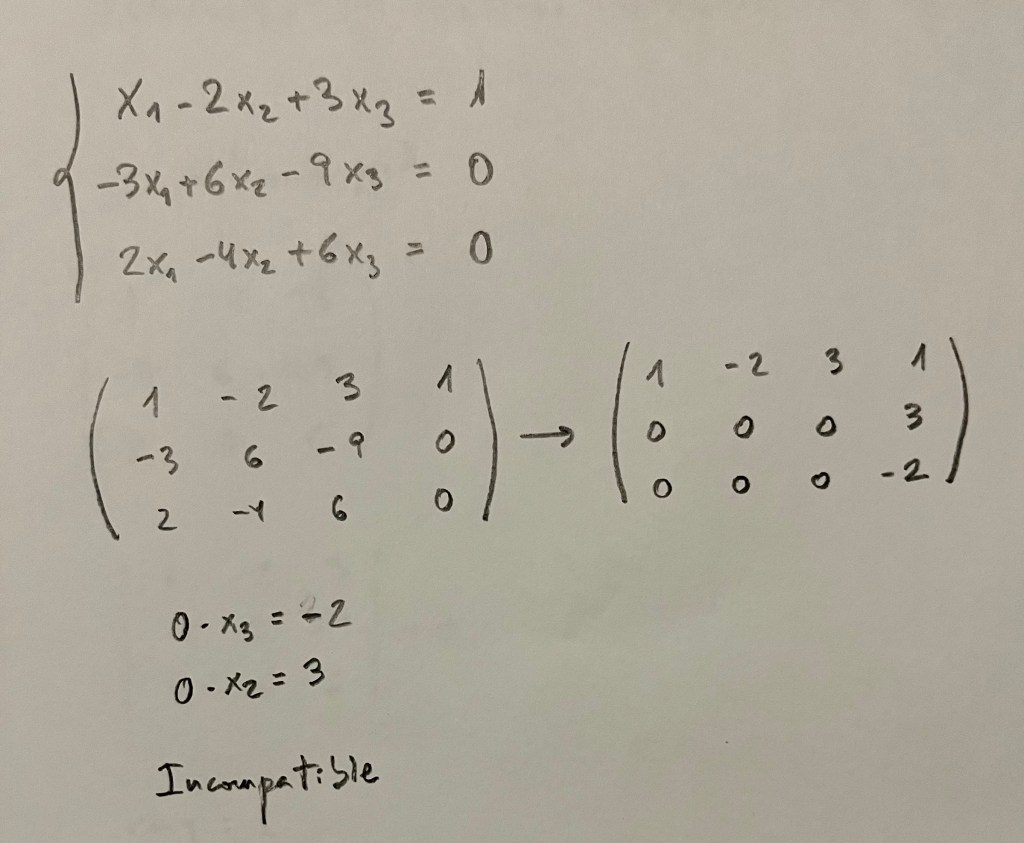 x₁ - 2x₂ + 3x₃ = 1
-3x₁ + 6x₂ - 9x₃ = 0
2x₁ - 4x₂ + 6x₃ = 0
( 1 -2 3 1 ) → ( 1 -2 3 1 )
( -3 6 -9 0 ) ( 0 0 0 3 )
( 2 -4 6 0 ) ( 0 0 0 -2 )
0 · x₃ = -2
0 · x₂ = 3
Incompatible